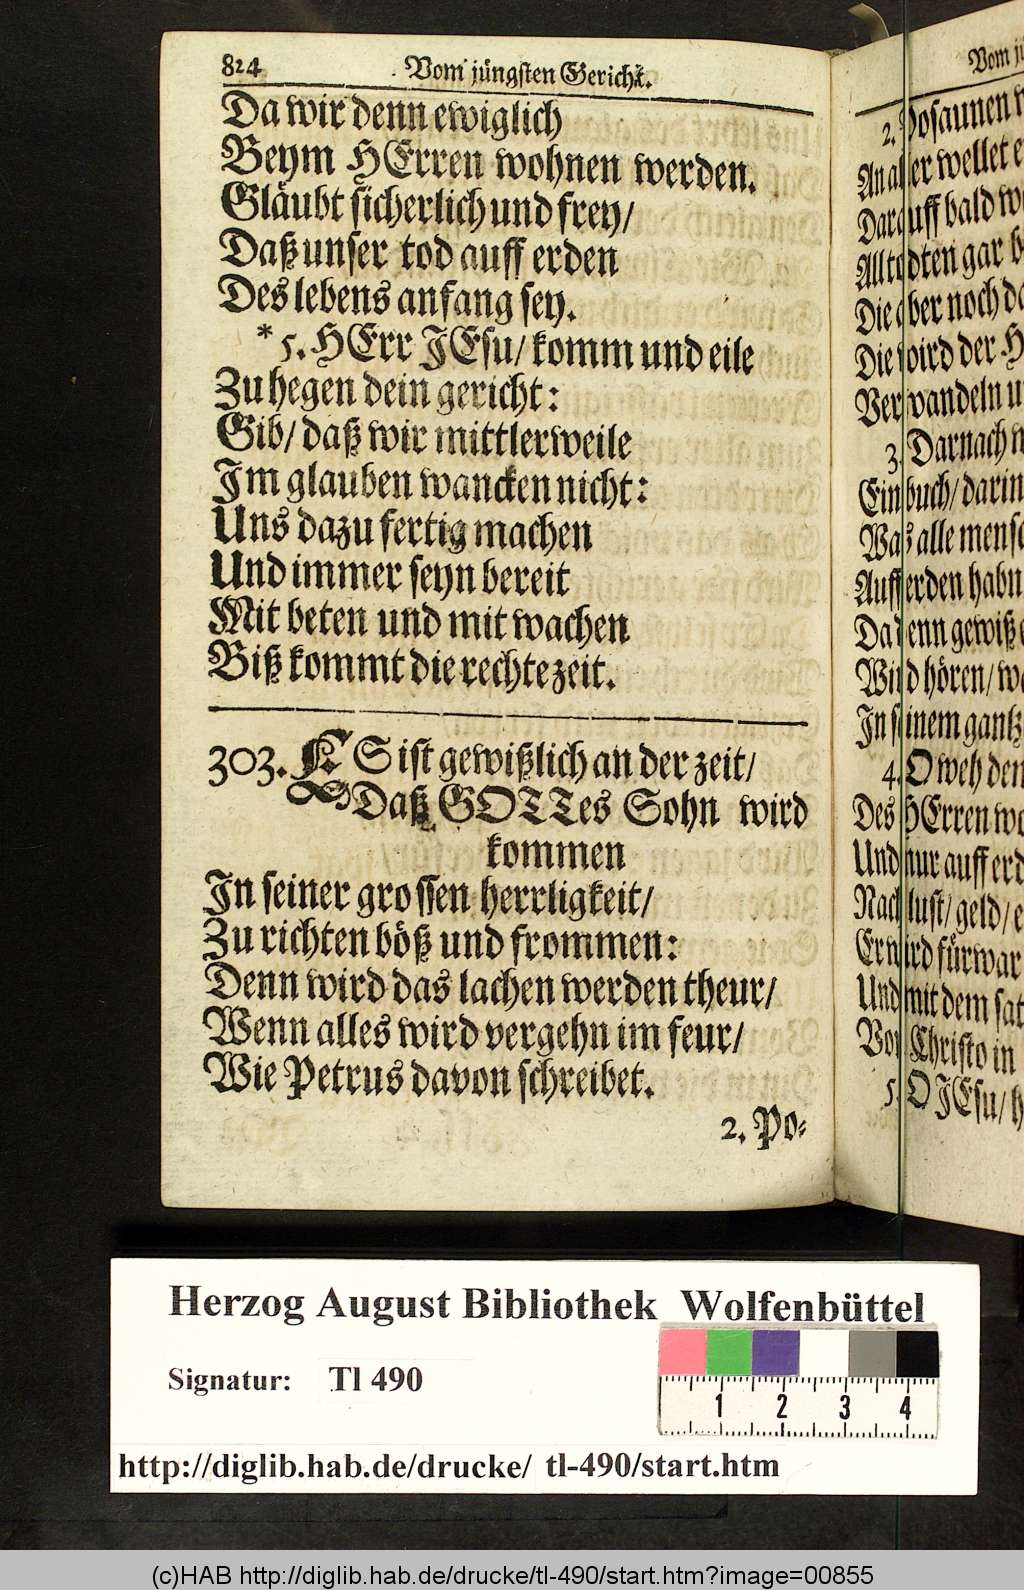 824 Vom jüngsten Gericht.
Da wir denn ewiglich
Beym HErren wohnen werden.
Gläubt sicherlich und frey/
Daß unser tod auff erden
Des lebens anfang sey.
* 5. HErr JEsu/ komm und eile
Zu hegen dein gericht:
Gib/ daß wir mittlerweile
Im glauben wancken nicht:
Uns dazu fertig machen
Und immer seyn bereit
Mit beten und mit wachen
Biß kommt die rechte zeit.
303. ES ist gewißlich an der zeit/
Daß GOTTes Sohn wird
kommen
In seiner grossen herrligkeit/
Zu richten böß und frommen:
Denn wird das lachen werden theur/
Wenn alles wird vergehn im feur/
Wie Petrus davon schreibet.
2. Po-
Vom
2. Posaunen
An aller wellet
Darauff bald
All todten gar
Die aber noch
Die wird der
Verwandeln
3. Darnach
Ein buch/ darin
Was alle
Auff erden
Da denn gewiß
Wird hören/
In seinem
4. O weh
Des HErren
Und nur auff
Nach lust/ geld/
Er wird fürwar
Und mit dem
Von Christo in
5. O JEsu/
Herzog August Bibliothek Wolfenbüttel
Signatur: Tl 490
1 2 3 4
http://diglib.hab.de/drucke/ tl-490/start.htm
(c)HAB http://diglib.hab.de/drucke/tl-490/start.htm?image=00855